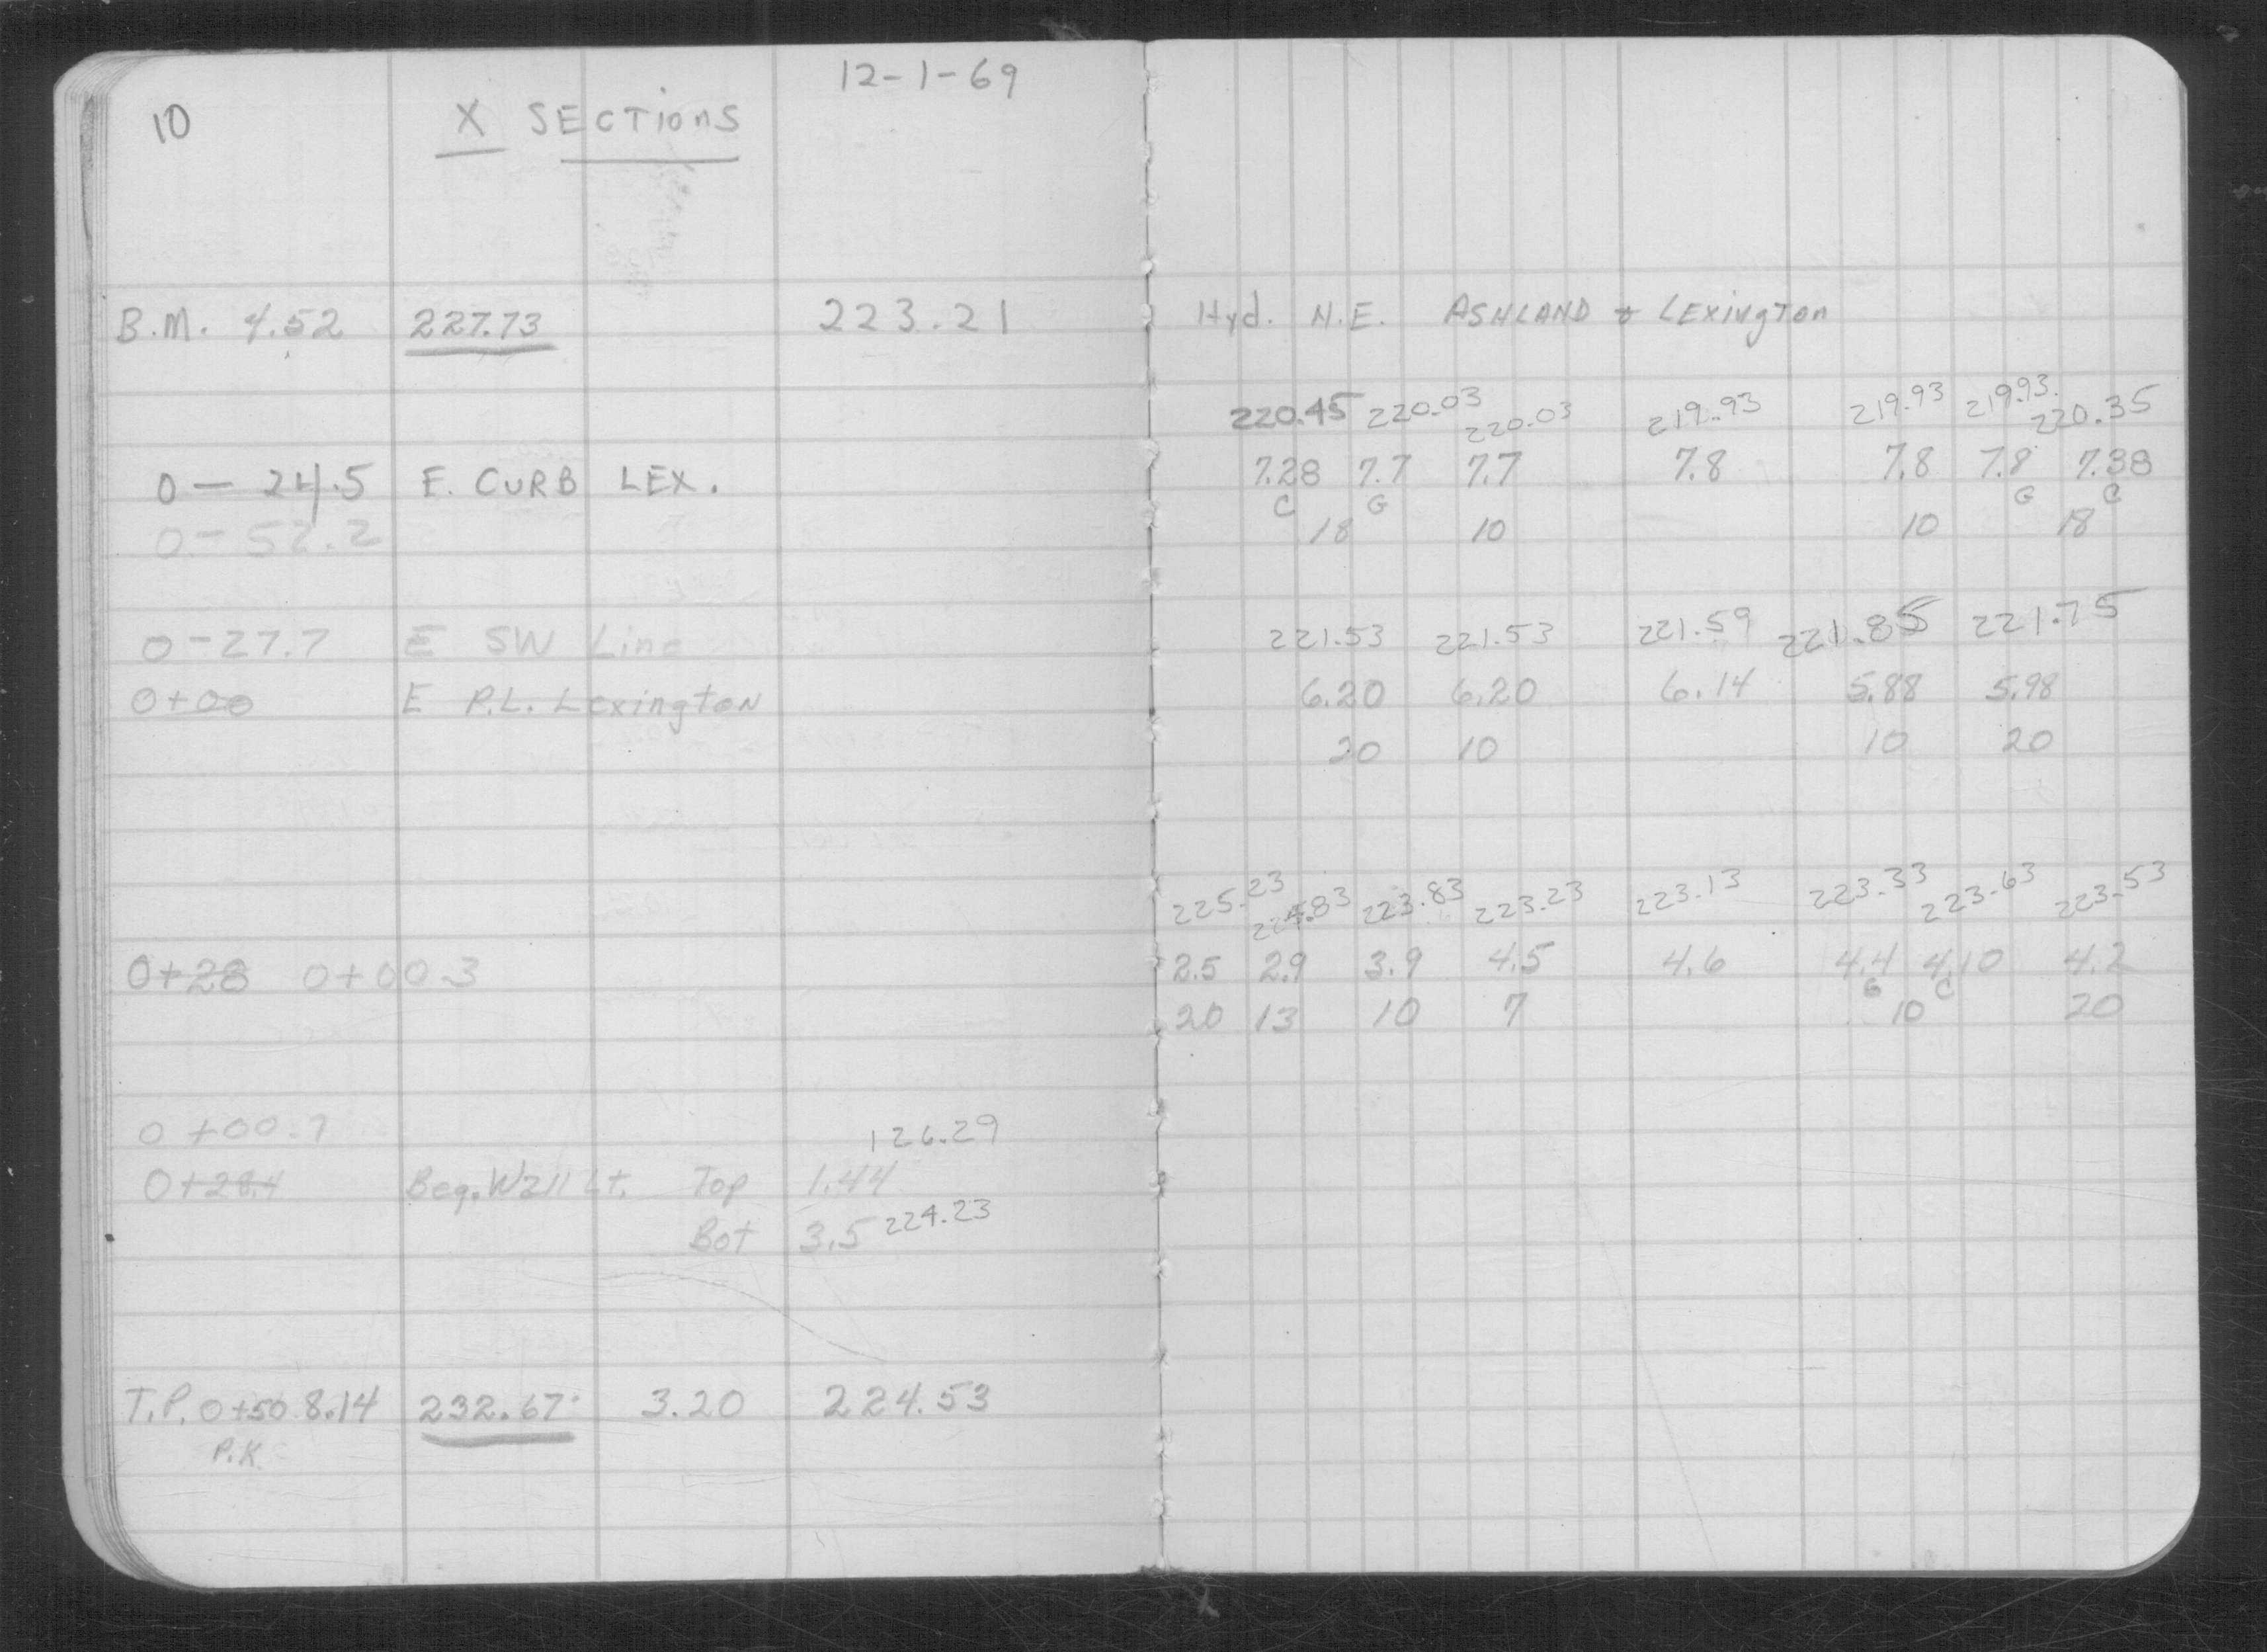 12-1-69
10 X SECTIONS
B.M. 4.52 227.73 223.21 Hyd. N.E. ASHLAND & LEXington
220.45 220.03 220.03 219.93 219.93 219.93 220.35
0 - 24.5 E. CURB LEX. 7.28 7.7 7.7 7.8 7.8 7.8 7.38
C G G C
0 - 52.2 18 10 10 18
0 - 27.7 E SW Line 221.53 221.53 221.59 221.85 221.75
0+00 E P.L. Lexington 6.20 6.20 6.14 5.88 5.98
20 10 10 20
225.23 224.83 223.83 223.23 223.13 223.33 223.63 223.53
0+28 0+00.3 2.5 2.9 3.9 4.5 4.6 4.4 4.10 4.2
G C
20 13 10 7 10 20
0+00.7 126.29
0+28.4 Beg. Wall Lt. Top 1.44
Bot 3.5 224.23
T.P. 0+50 8.14 232.67 3.20 224.53
P.K.